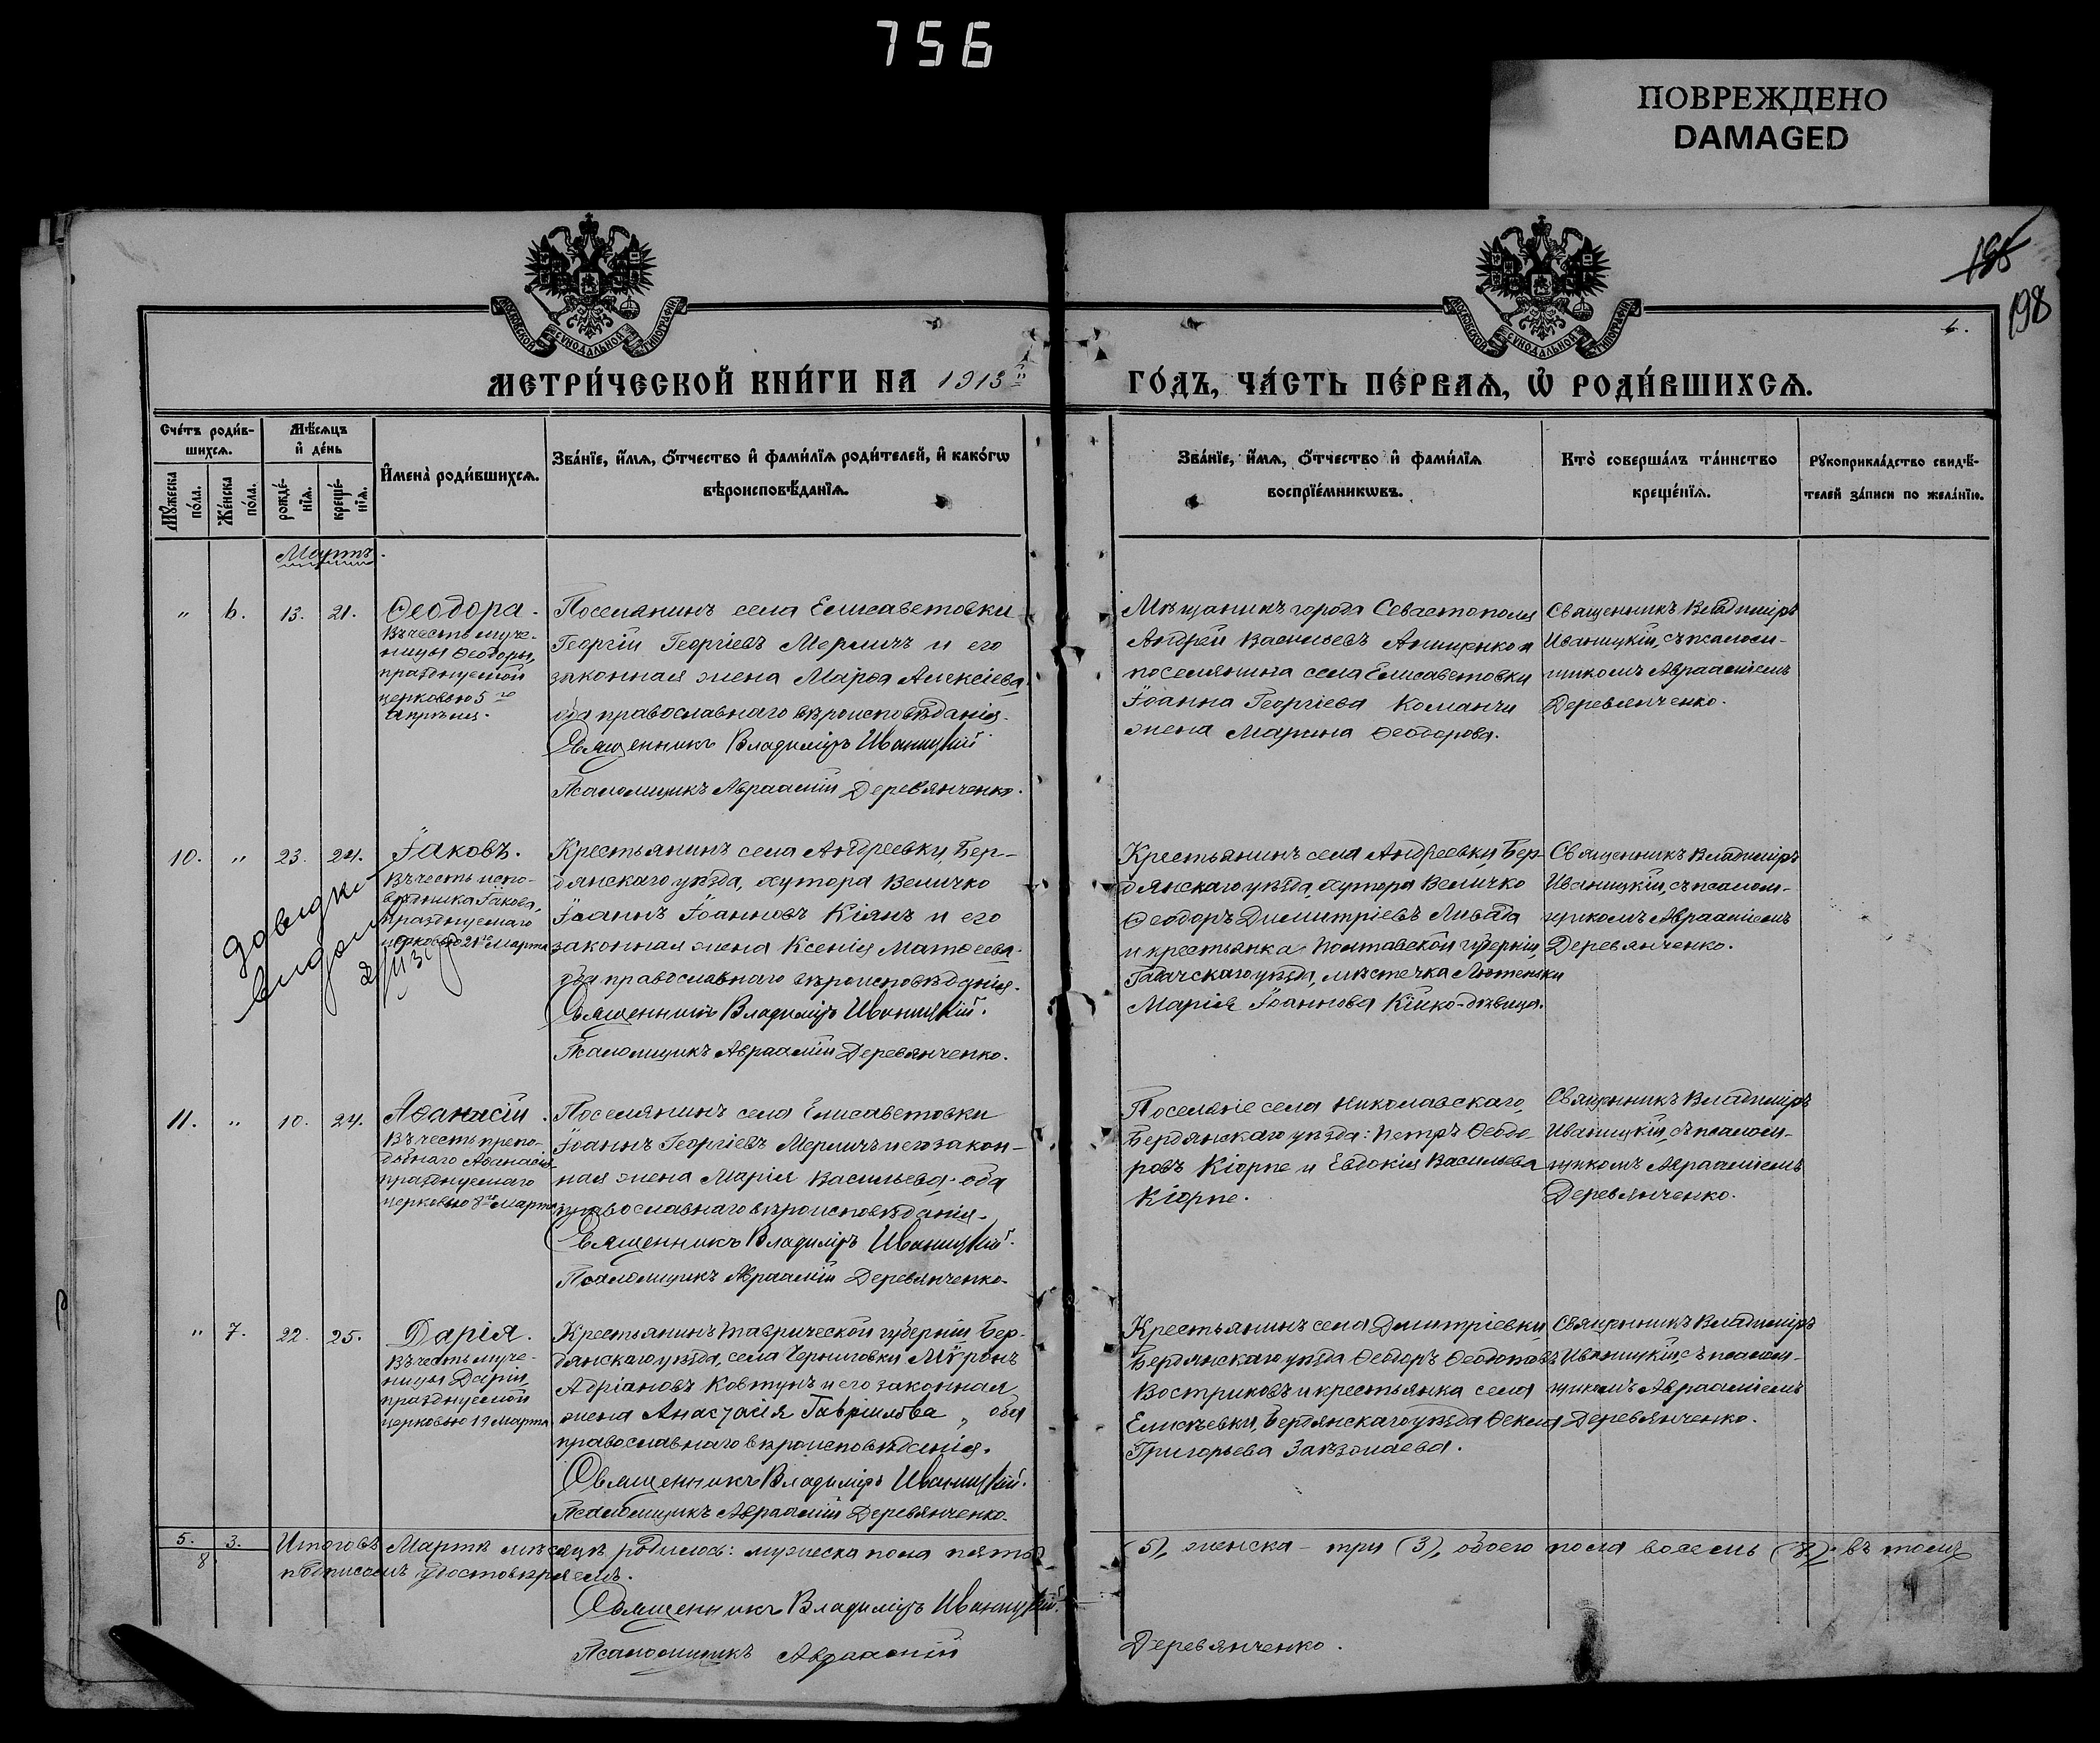 756
ПОВРЕЖДЕНО
DAMAGED
185
198
6.
МОСКОВСКОЙ СУНОДАЛЬНОЙ ТИПОГРАФІИ
МОСКОВСКОЙ СУНОДАЛЬНОЙ ТИПОГРАФІИ
МЕТРИ́ЧЕСКОЙ КНИ́ГИ НА 1913й
ГО́ДЪ, ЧА́СТЬ ПЕ́РВАѦ, Ѡ҆ РОДИ́ВШИХСѦ.
Сче́тъ роди́в-
шихсѧ.
Мѣ́сѧцъ
и҆ де́нь
Мꙋ́жеска по́ла.
Же́нска по́ла.
рожде́-
нїѧ.
креще́-
нїѧ.
И҆мена̀ роди́вшихсѧ.
Зва́нїе, и҆́мѧ, ѻ҆́тчество и҆ фами́лїѧ роди́телей, и҆ како́гѡ
вѣроисповѣ́данїѧ.
Зва́нїе, и҆́мѧ, ѻ҆́тчество и҆ фами́лїѧ
воспрїе́мникѡвъ.
Кто̀ соверша́лъ та́инство
креще́нїѧ.
Рꙋкоприкла́дство свидѣ́-
телей за́писи по жела́нїю.
Мартъ.
" 6. 13. 21. Ѳеодора.
Въ честь муче-
ницы Ѳеодоры,
празднуемой
церковью 5го
Апрѣля.
Поселянинъ села Елисаветовки
Георгій Георгіевъ Мерличъ и его
законная жена Марѳа Алексіева,
оба православнаго вѣроисповѣданія.
Священникъ Владиміръ Иваницкій
Псаломщикъ Авраамій Деревянченко.
Мѣщанинъ города Севастополя
Андрей Васильевъ Анищенко и
поселянина села Елисаветовки
Іоанна Георгіева Команчи
жена Марина Ѳеодорова.
Священникъ Владиміръ
Иваницкій, съ псалом-
щикомъ Авраміемъ
Деревянченко.
10. " 23. 24. Іаковъ.
Въ честь испо-
вѣдника Іакова,
празднуемаго
церковью 21го Марта
Крестьянинъ села Андреевки, Бер-
дянскаго уѣзда, хутора Величко
Іоаннъ Іоанновъ Кіянъ и его
законная жена Ксенія Матѳеева,
оба православнаго вѣроисповѣданія.
Священникъ Владиміръ Иваницкій.
Псаломщикъ Авраамій Деревянченко.
Крестьянинъ села Андреевки, Бер-
дянскаго уѣзда, хутора Величко
Ѳеодоръ Димитріевъ Ливада
и крестьянка Полтавской губерніи,
Гадячскаго уѣзда, мѣстечка Лютеньки
Марія Іоаннова Кійко-дѣвица.
Священникъ Владиміръ
Иваницкій, съ псалом-
щикомъ Авраміемъ
Деревянченко.
11. " 10. 24. Аѳанасій.
Въ честь препо-
добнаго Аѳанасія
празднуемаго
церковью Марта
Поселянинъ села Елисаветовки
Іоаннъ Георгіевъ Мерличъ и его закон-
ная жена Марія Васильева, оба
православнаго вѣроисповѣданія.
Священникъ Владиміръ Иваницкій.
Псаломщикъ Авраамій Деревянченко.
Поселяне села Николаевскаго,
Бердянскаго уѣзда: Петръ Ѳеодо-
ровъ Кіорпе и Евдокія Васильева
Кіорпе.
Священникъ Владиміръ
Иваницкій, съ псалом-
щикомъ Авраміемъ
Деревянченко.
" 7. 22. 25. Дарія.
Въ честь муче-
ницы Даріи,
празднуемой
церковью 19 Марта
Крестьянинъ Таврической губерніи Бер-
дянскаго уѣзда, села Черниговки Мѵронъ
Адріановъ Ковтунъ и его законная
жена Анастасія Гавриилова, оба
православнаго вѣроисповѣданія.
Священникъ Владиміръ Иваницкій.
Псаломщикъ Авраамій Деревянченко.
Крестьянинъ села Димитріевки,
Бердянскаго уѣзда Ѳеодоръ
Востриковъ и крестьянка села
Елисѣевки, Бердянскаго уѣзда Ѳекла
Григорьева
Священникъ Владиміръ
Иваницкій, съ псалом-
щикомъ Авраміемъ
Деревянченко.
5. 3.
8
Итого въ Мартѣ мѣсяцѣ родилось: мужеска пола пять (5), женска – три (3), обоего пола восемь (8), въ томъ
подписомъ удостовѣряемъ.
Священникъ Владиміръ Иваницкій.
Псаломщикъ Авраамій Деревянченко.